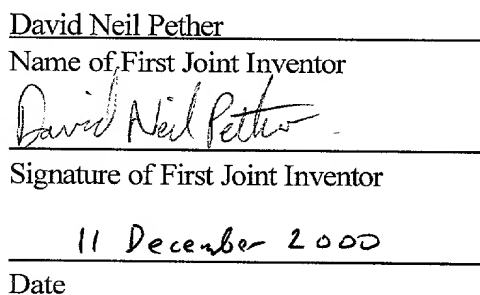 David Neil Pether
Name of First Joint Inventor
David Neil Pether
Signature of First Joint Inventor
11 December 2000
Date